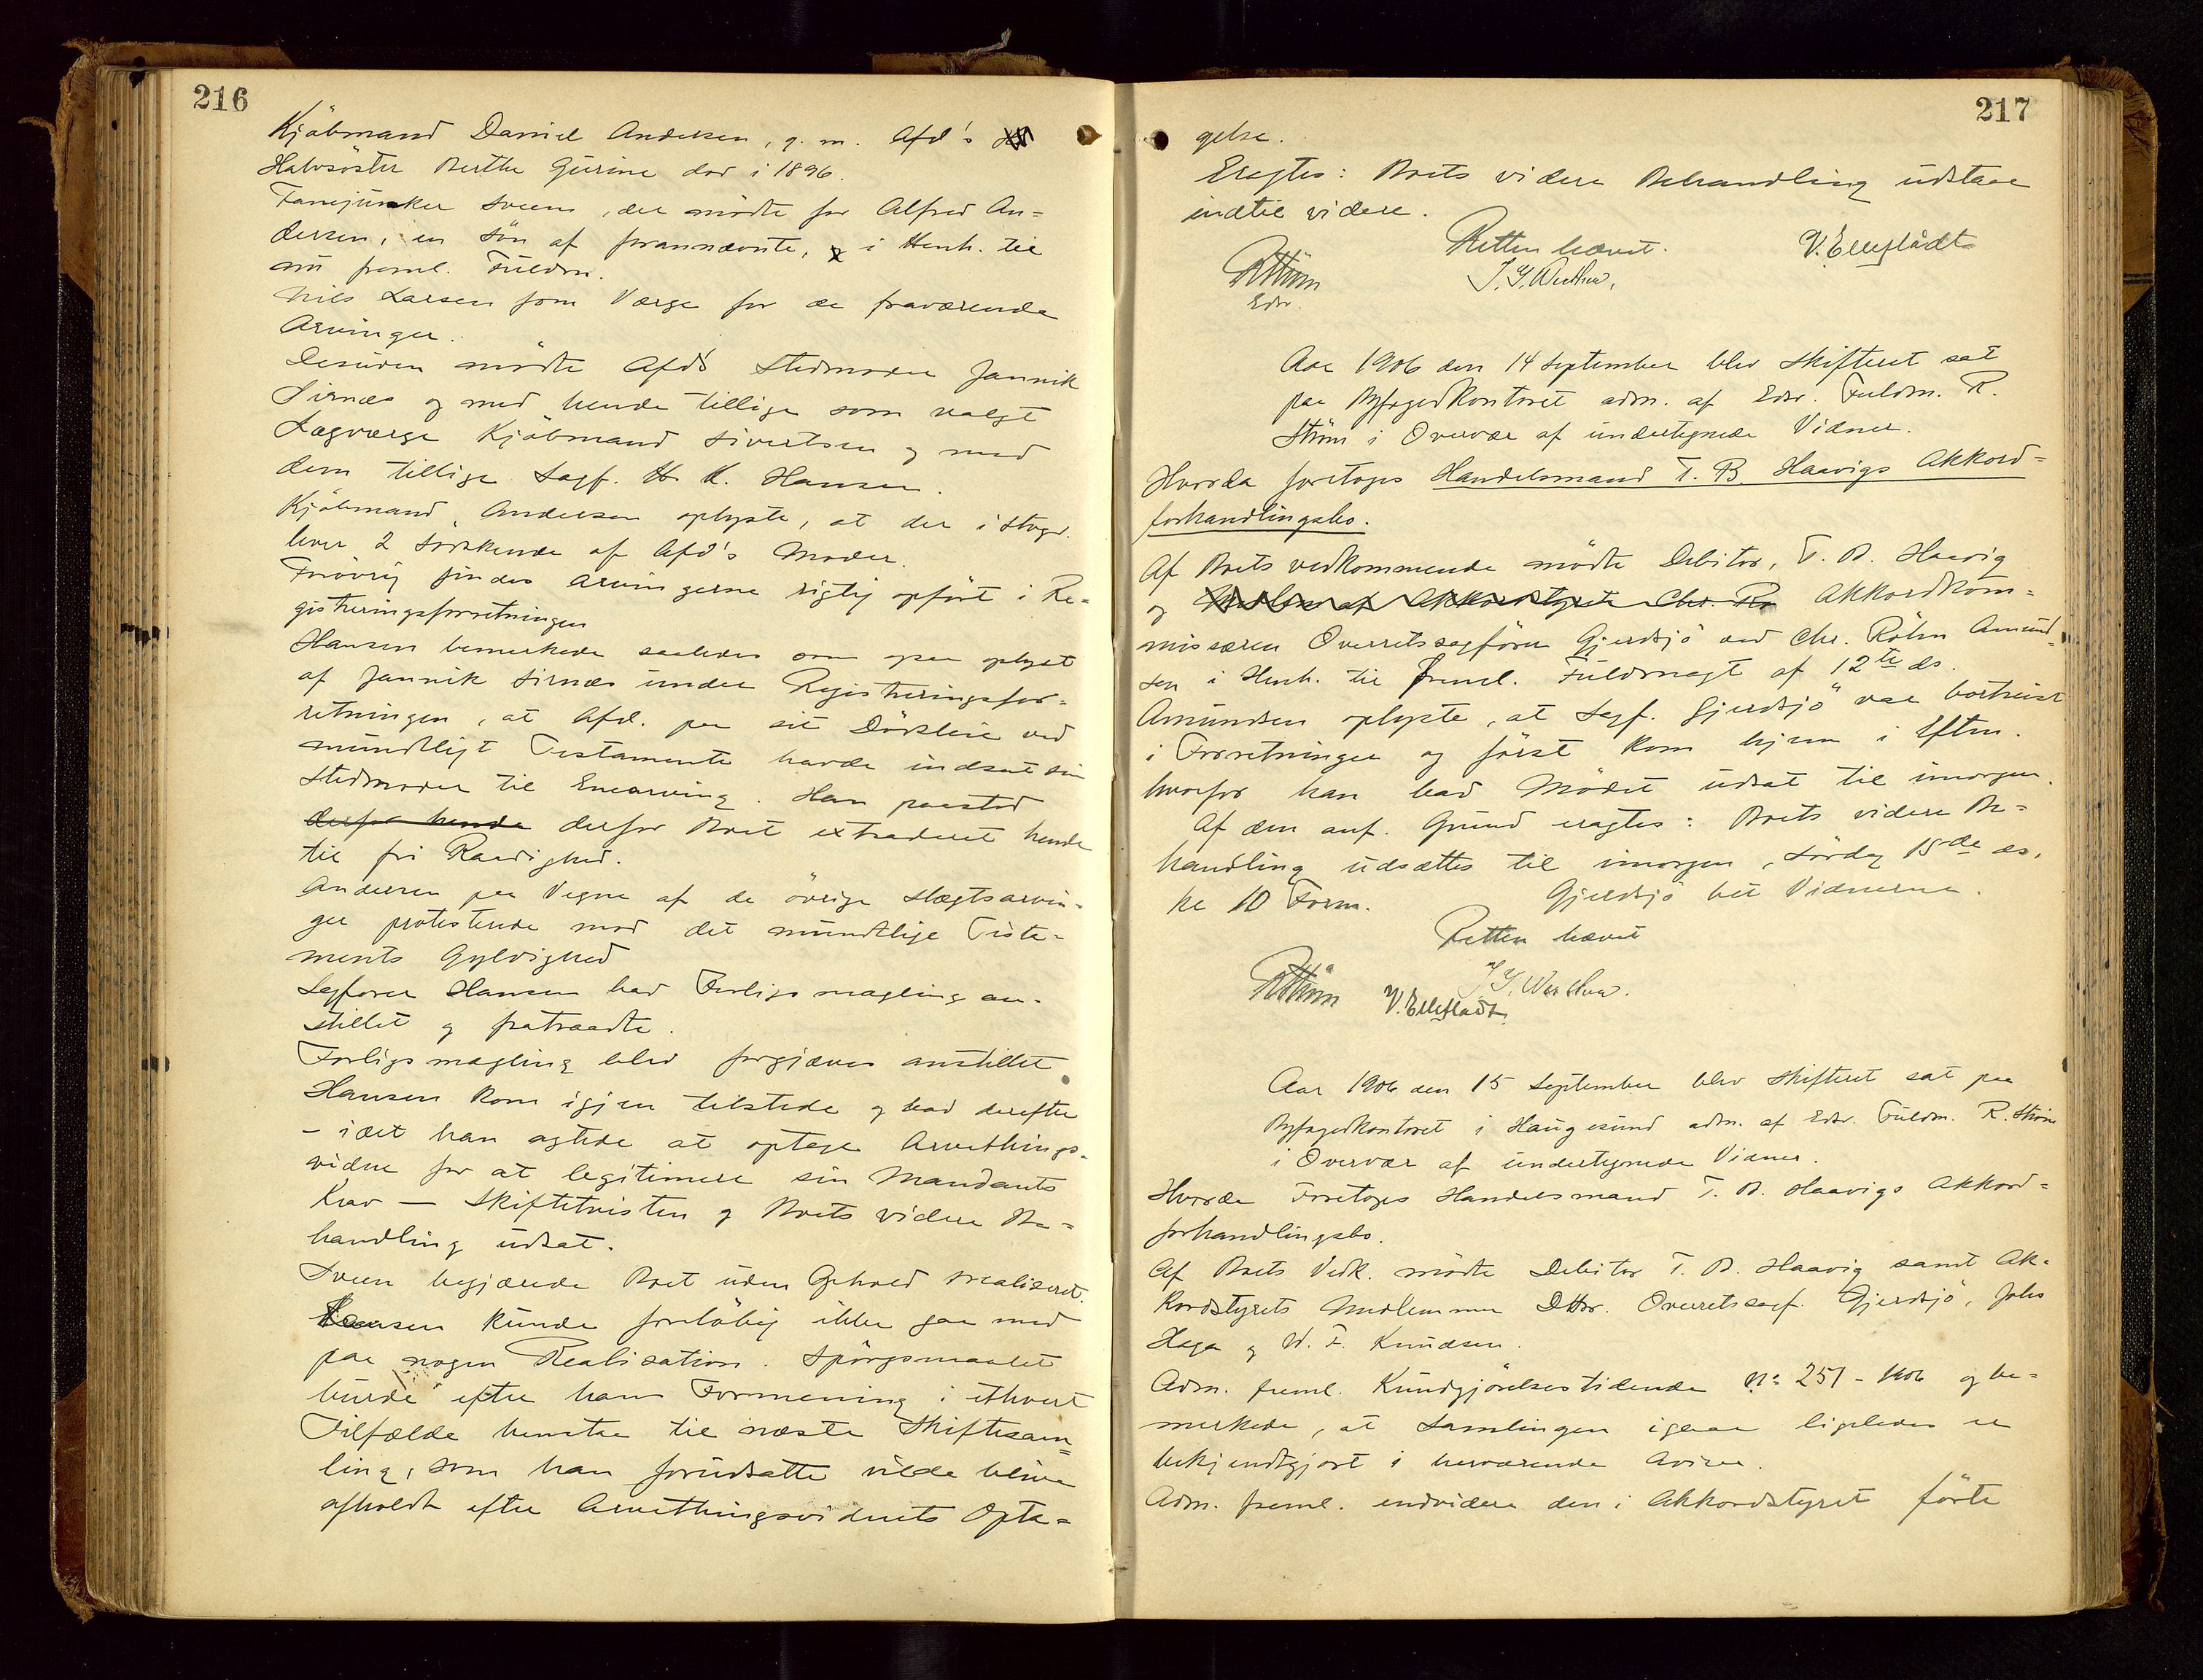 216
Kjöbmand Daniel Andersen, g. m. Afd's
Halvsöster Berthe Gurine död i 1896.
Fanejunker Sveen, der mödte for Alfred An=
dersen, en Sön af forannævnte, i Henh. til
nu freml. Fuldm.
Nils Larsen som Værge for de fraværende
Arvinger.
Desuden mödte Afd's Stedmoder Jannik
Sirnæs og med hende tillige som valgt
Lagværge Kjöbmand Sivertsen og med
dem tillige Sagf. H. K. Hansen.
Kjöbmand Andersen oplyste, at der i Stvgr.
lever 2 Söskende af Afd's Moder.
Forövrig findes Arvingerne rigtig opfört i Re=
gistreringsforretningen
Hansen bemerkede saaledes som ogsaa oplyst
af Jannik Sirnæs under Registreringsfor=
retningen, at Afd. paa sit Dödsleie ved
mundtligt Testamente havde indsat sin
Stedmoder til Enearving. Han paastod
derfor hende derfor Boet extraderet hende
til fri Raadighed.
Andersen paa Vegne af de övrige Slægtsarvin=
ger protesterede mod det mundtlige Testa=
ments Gyldighed
Sagförer Hansen bad Forligsmægling an=
stillet og fratraadte.
Forligsmægling blev forgjæves anstillet
Hansen kom igjen tilstede og bad derefter
— idet han agtede at optage Arvethings=
vidne for at legitimere sin Mandants
Krav — Skiftetvisten og Boets videre Be=
handling udsat.
Sveen begjærede Boet uden Ophold realiseret.
Hansen kunde foreløbig ikke gaa med
paa nogen Realisation. Spörgsmaalet
burde efter hans Formening i ethvert
Tilfælde henstaa til næste Skiftesam=
ling, som han forudsatte vilde blive
afholdt efter Arvethingsvidnets Opta=
217
gelse.
Eragtes: Boets videre Behandling udstaar
indtil videre.
Retten hævet.
V. Ellefladt
RStröm
Edsv.
Aar 1906 den 14 September blev Skifteret sat
paa Byfogedkontoret adm. af Edsv. Fuldm. R.
Ström i Overvær af undertegnede Vidner.
Hvorda foretoges Handelsmand T. B. Haavigs Akkord=
forhandlingsbo.
Af Boets vedkommende mödte Debitor, T. B. Haavig
og Medlem af Akkordstyret Chr. Rö Akkordkom=
missæren Overretssagförer Gjerdsjö ved Chr. Röhn Amund=
sen i Henh. til freml. Fuldmagt af 12te ds.
Amundsen oplyste, at Sagf. Gjerdsjö var bortreist
i Forretninger og först kom hjem i Efterm.
hvorfor han bad Mödet udsat til imorgen.
Af den anf. Grund eragtes: Boets videre Be=
handling udsættes til imorgen, Lördag 15de ds.
kl 10 Form. Gjerdsjö bet Vidnerne.
Retten hævet
RStröm
V. Ellefladt.
Aar 1906 den 15 September blev Skifteret sat paa
Byfogedkontoret i Haugesund adm. af Edsv. Fuldm. R. Ström
i Overvær af undertegnede Vidner.
Hvorda Foretoges Handelsmand T. B. Haavigs Akkord=
forhandlingsbo.
Af Boets Vedk. mödte Debitor T. B. Haavig samt Ak=
kordstyrets Medlemmer DHrr. Overretssagf. Gjerdsjö, Johs
Haga og W. F. Knudsen.
Adm. freml. Kundgjörelsestidende No 251 - 1906 og be=
merkede, at Samlingen igaar ligeledes er
bekjendtgjort i herværende Aviser.
Adm. freml. endvidere den i Akkordstyret förte